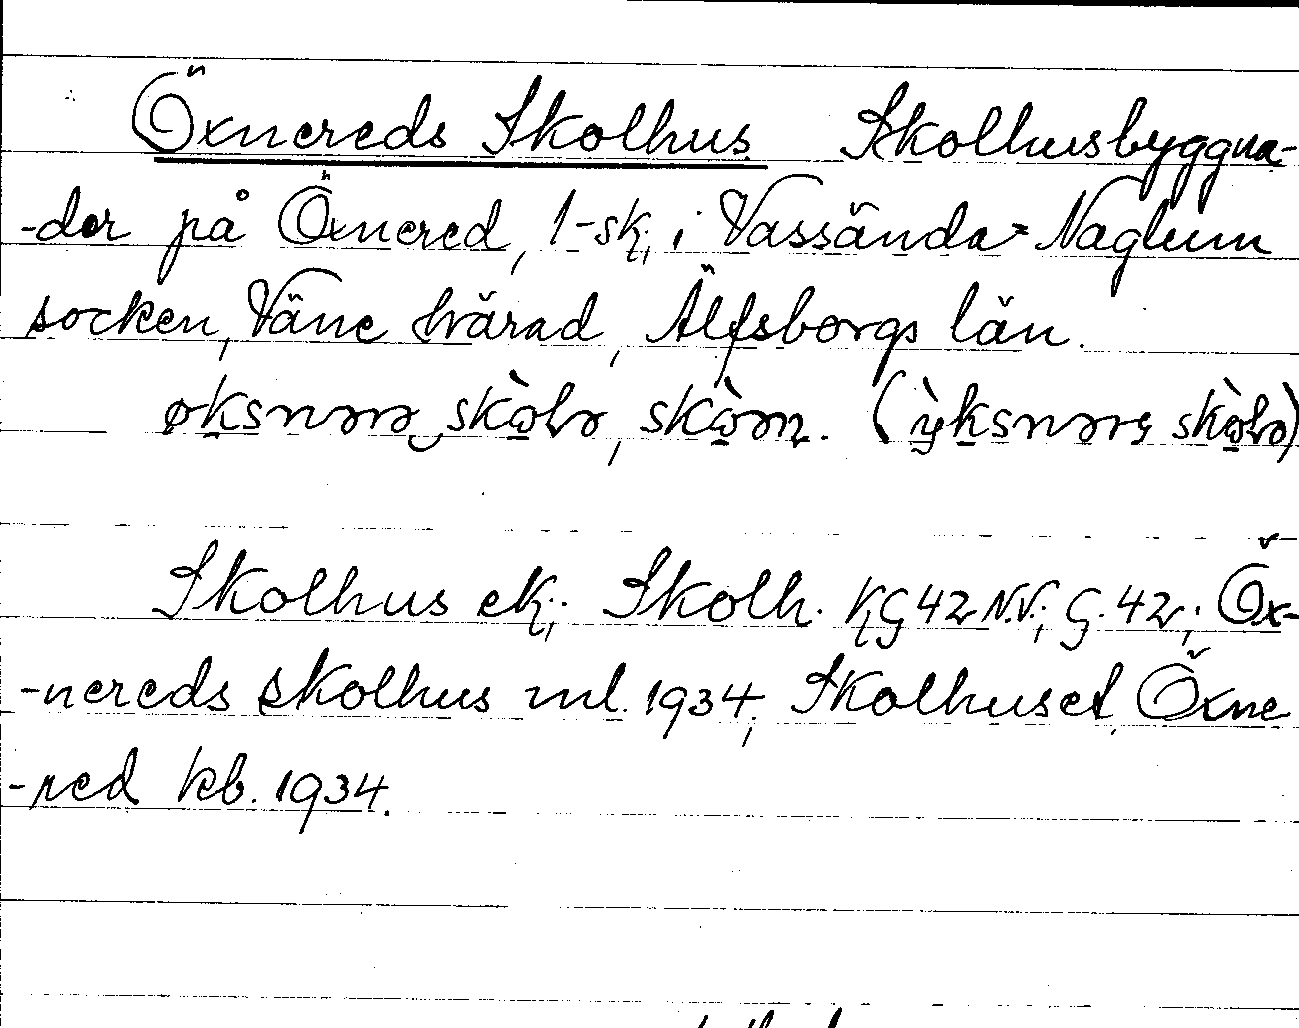 Öxnereds Skolhus Skolhusbyggna-
-der på Öxnered, 1-sk; i Vassända-Naglum
socken, Väne härad, Älfsborgs län.
Skolhus ek; Skolh. KG 42 N.V.; G. 42; Öx-
-nereds skolhus ml. 1934; Skolhuset, Öxne
-red kb. 1934.